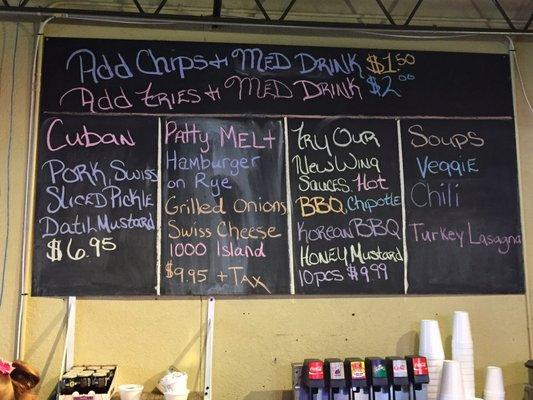 Add Chips + Med Drink $1.50
Add Fries + Med Drink $2.00
Cuban
Pork, Swiss
Sliced Pickle
Datil Mustard
$6.95
Patty Melt
Hamburger
on Rye
Grilled Onions
Swiss Cheese
1000 Island
$9.95 + Tax
Try Our
New Wing
Sauces Hot
BBQ, Chipotle
Korean BBQ
Honey Mustard
10 pcs $9.99
Soups
Veggie
Chili
Turkey Lasagna